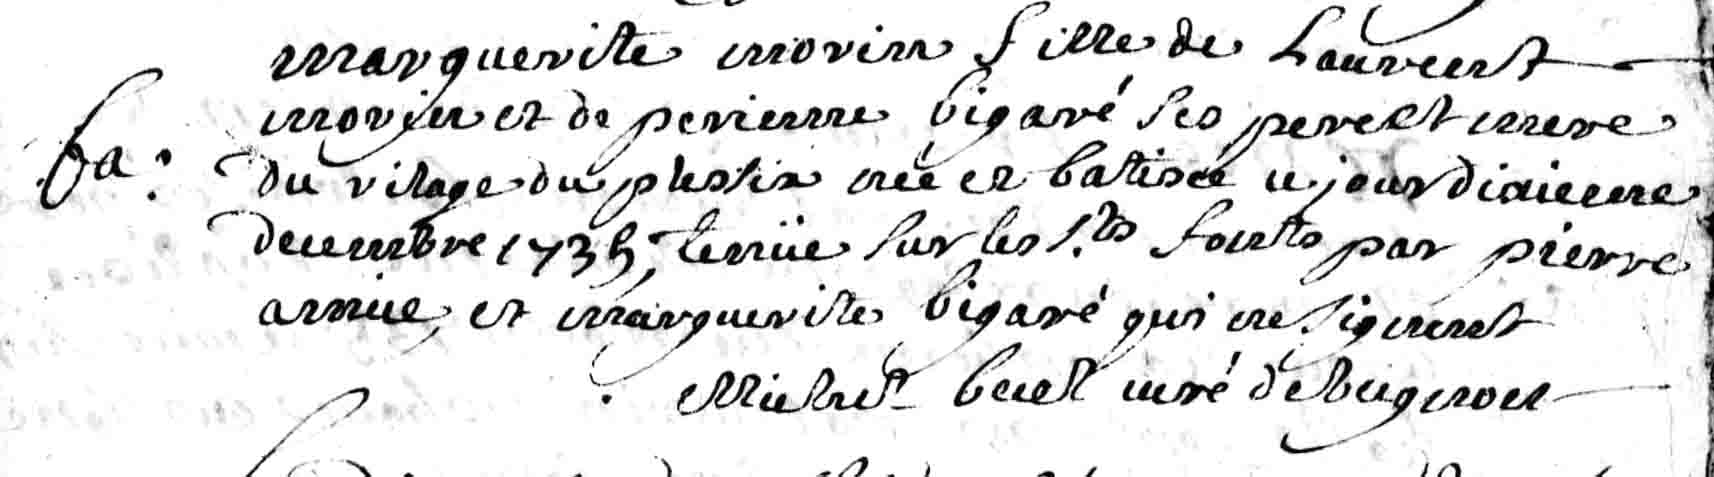 marguerite morin fille de Laurent
morin et de perienne bigaré ses pere et mere
ba:
du vilage du plessix née et batisée ce jour dixieme
decembre 1735, tenüe sur les s.ts fonts par pierre
et marguerite bigaré qui ne signent
curé de